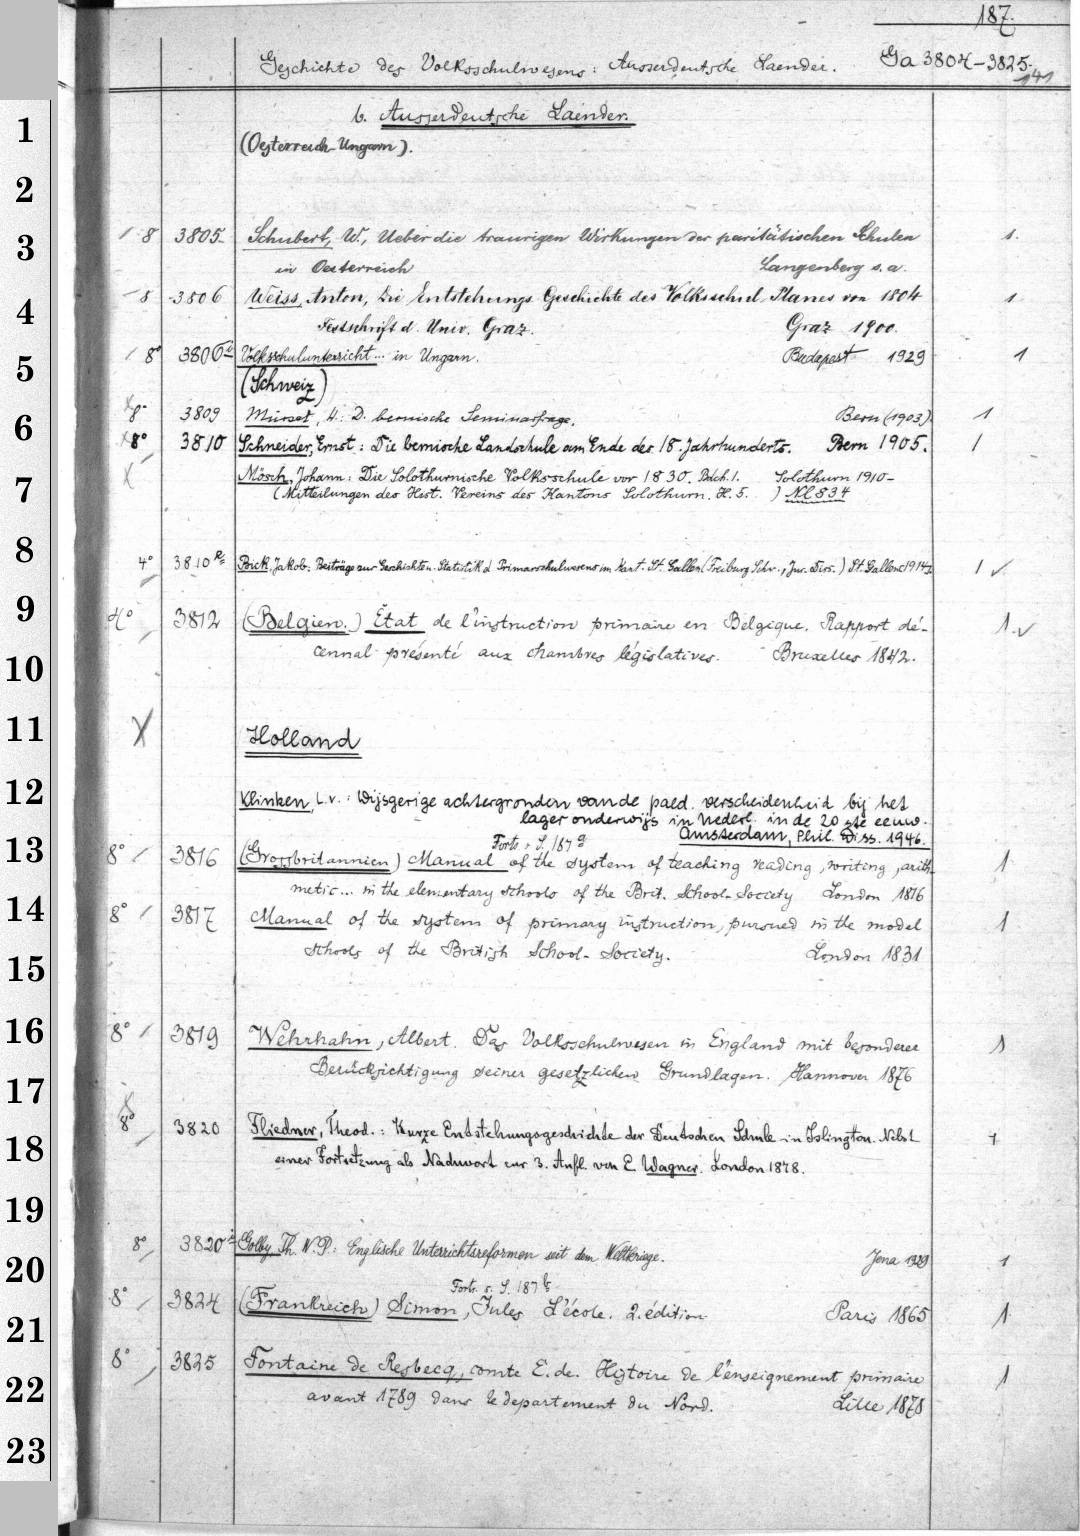 187.
Geschichte des Volksschulwesens: Ausserdeutsche Laender. Ga 3804-3825.
141
b. Ausserdeutsche Laender.
(Oesterreich-Ungarn).
8 3805 Schubert, W., Ueber die traurigen Wirkungen der paritätischen Schulen 1.
in Oesterreich Langenberg s.a.
8 3806 Weiss, Anton, Die Entstehungs-Geschichte des Volksschul-Planes von 1804 1
Festschrift d. Univ. Graz. Graz 1900.
8° 3806 Volksschulunterricht... in Ungarn. Budapest 1929 1
(Schweiz)
8° 3809 Mürset, A: D. bernische Seminarfrage. Bern (1903). 1
8° 3810 Schneider, Ernst: Die bernische Landschule am Ende des 18. Jahrhunderts. Bern 1905. 1
Mösch, Johann: Die Solothurnische Volksschule vor 1830. Bdch. 1. Solothurn 1910-
(Mitteilungen des Hist. Vereins des Kantons Solothurn. H. 5. ) Nl 834
4° 3810 Bick, Jakob: Beiträge zur Geschichte u. Statistik d. Primarschulwesens im Kant. St. Gallen (Freiburg Schw., Jur. Diss.) St. Gallen 1914 1 ✓
4° 3812 (Belgien.) État de l'instruction primaire en Belgique. Rapport dé- 1. ✓
cennal présenté aux chambres législatives. Bruxelles 1842.
X Holland
Klinken, L.v.: Wijsgerige achtergronden van de paed. verscheidenheid bij het
lager onderwijs in Nederl. in de 20 ste eeuw.
Amsterdam, Phil. Diss. 1946.
Forts. s. S. 187 a
8° 3816 (Grossbritannien) Manual of the system of teaching reading, writing, arith- 1
metic... in the elementary schools of the Brit. School-Society London 1816
8° 3817 Manual of the system of primary instruction, pursued in the model 1
schools of the British School-Society. London 1831
8° 3819 Wehrhahn, Albert. Das Volksschulwesen in England mit besonderer 1
Berücksichtigung seiner gesetzlichen Grundlagen. Hannover 1876
8° 3820 Fliedner, Theod.: Kurze Entstehungsgeschichte der Deutschen Schule in Islington. Nebst 1
einer Fortsetzung als Nachwort zur 3. Aufl. von E. Wagner. London 1878.
8° 3820 Golby, Th. W. P.: Englische Unterrichtsreformen seit dem Weltkriege. Jena 1929 1
Forts. s. S. 187 b
8° 3824 (Frankreich) Simon, Jules L'école. 2. édition Paris 1865 1
8° 3825 Fontaine de Resbecq, comte E. de. Histoire de l'enseignement primaire 1
avant 1789 dans le departement du Nord. Lille 1878
1
2
3
4
5
6
7
8
9
10
11
12
13
14
15
16
17
18
19
20
21
22
23